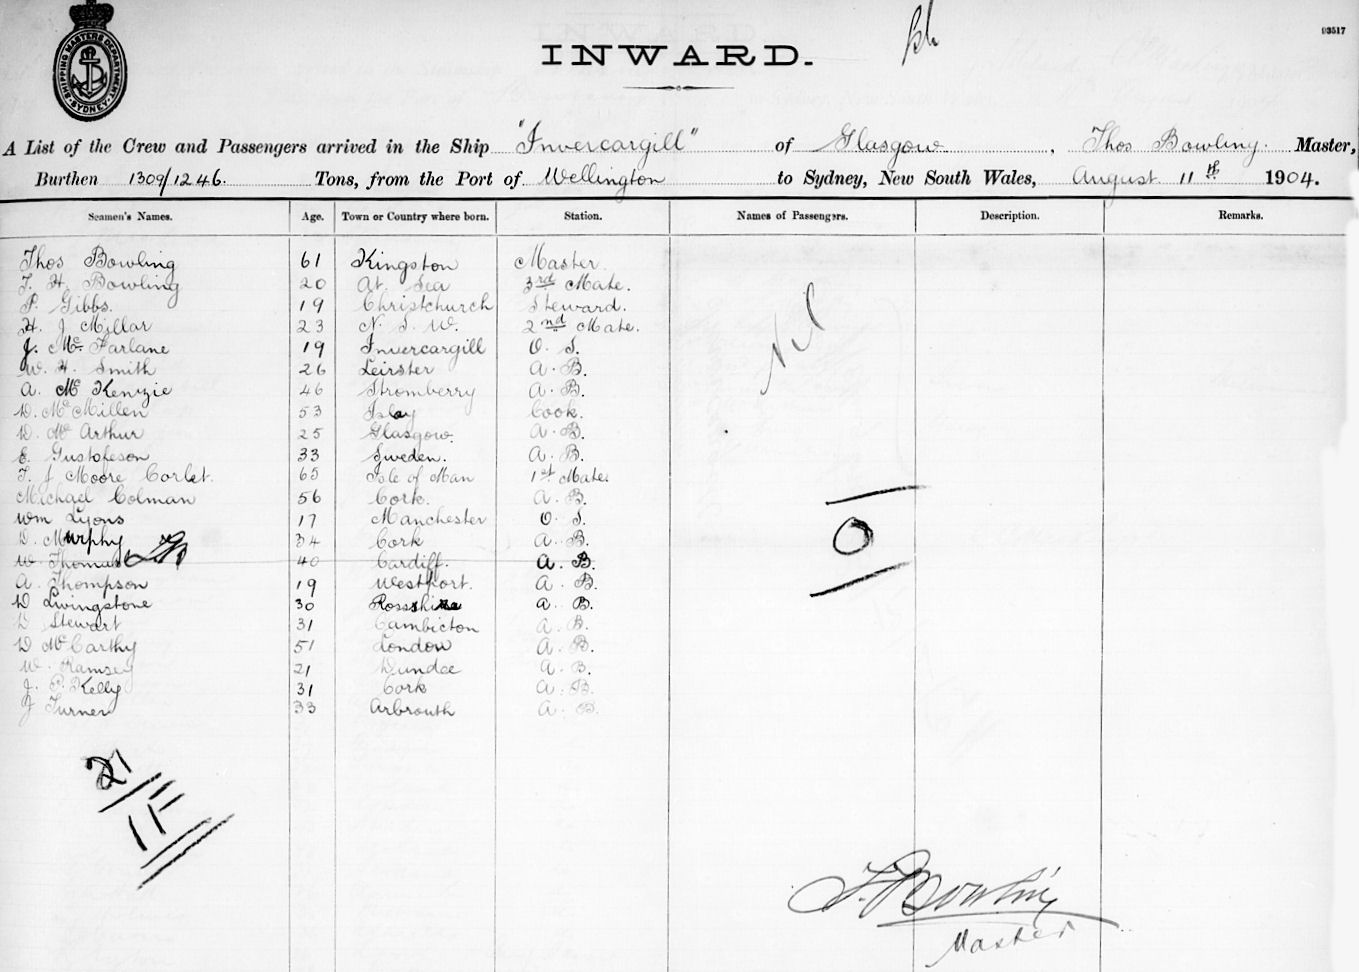 SHIPPING MASTERS DEPARTMENT SYDNEY
INWARD.
93517
A List of the Crew and Passengers arrived in the Ship "Invercargill" of Glasgow, Thos Bowling. Master,
Burthen 1309/1246. Tons, from the Port of Wellington to Sydney, New South Wales, August 11th 1904.
Seamen's Names. Age. Town or Country where born. Station. Names of Passengers. Description. Remarks.
Thos Bowling 61 Kingston Master.
T. H. Bowling 20 At Sea 3rd Mate.
P. Gibbs. 19 Christchurch Steward.
H. J Millar 23 N. S. W. 2nd Mate.
J. Mc Farlane 19 Invercargill O. S.
W. H. Smith 26 Leirster A. B.
A. Mc Kenzie 46 Stromberry A. B.
D. McMillen 53 Islay Cook.
D. Mc Arthur 25 Glasgow. A. B.
E. Gustofeson 33 Sweden. A. B.
T. J Moore Corlet. 65 Isle of Man 1st Mate.
Michael Colman 56 Cork. A. B.
Wm Lyons 17 Manchester O. S.
D. Murphy 34 Cork A. B.
W Thomas 40 Cardiff. A. B.
A. Thompson 19 Westport. A. B.
D Livingstone 30 Rossshire A. B.
D Stewart 31 Cambicton A. B.
D McCarthy 51 London A. B.
W. Ramsey 21 Dundee A. B.
J. P. Kelly 31 Cork A. B.
J Turner 33 Arbrouth A. B.
Nil
0
21
1F
T. Bowling
Master